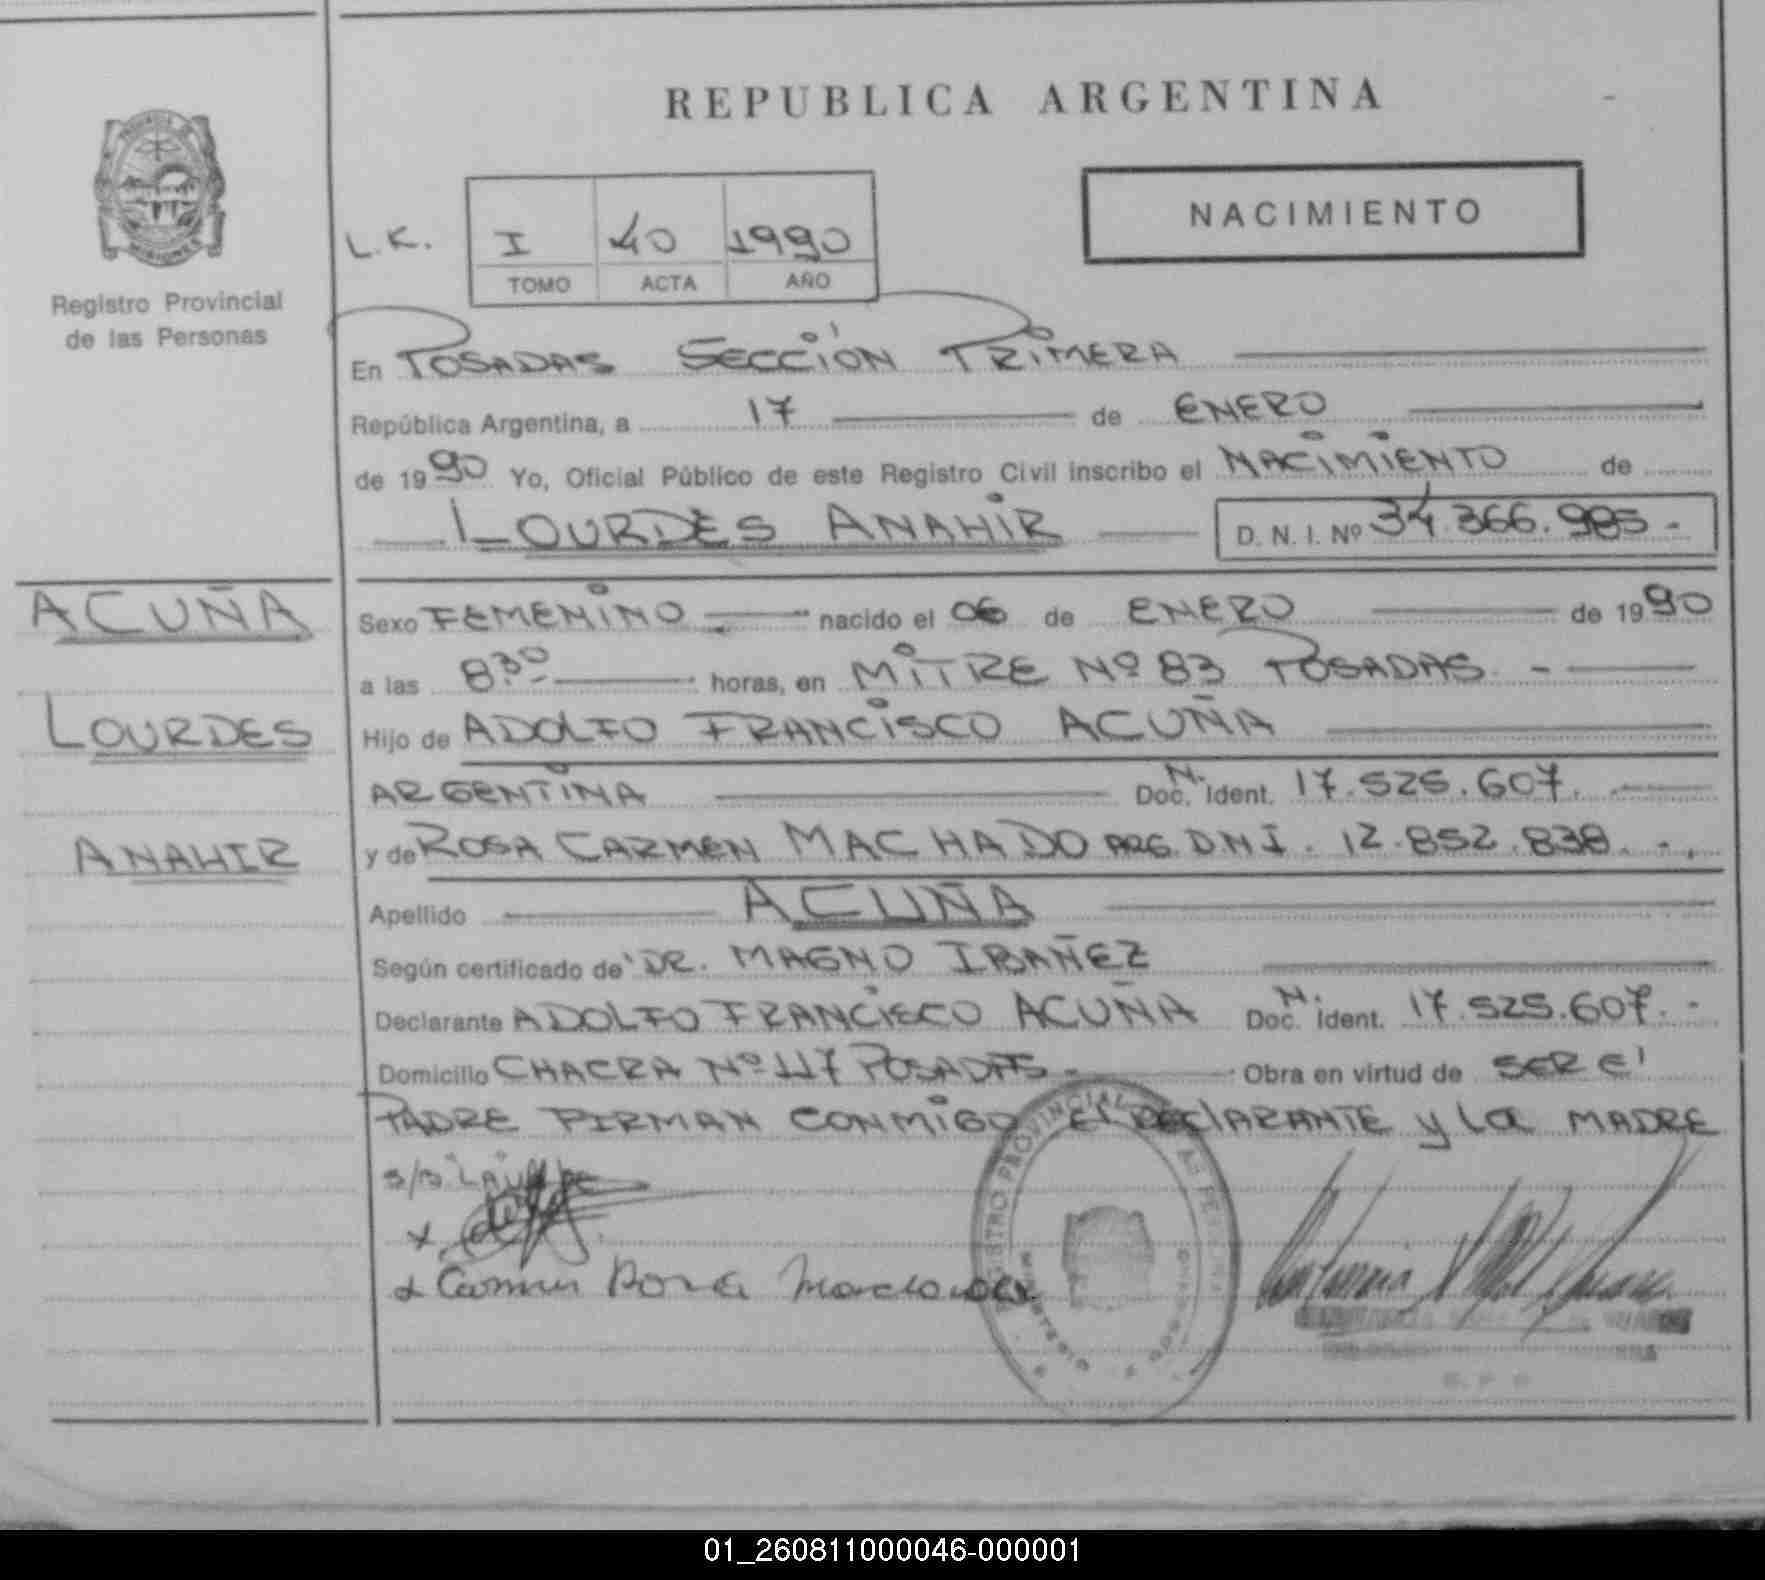 REPUBLICA ARGENTINA
NACIMIENTO
L.K. I 40 1990
TOMO ACTA AÑO
Registro Provincial
de las Personas
En POSADAS SECCIÓN PRIMERA
República Argentina, a 17 de ENERO
de 1990 Yo, Oficial Público de este Registro Civil inscribo el NACIMIENTO de
LOURDES ANAHIR D. N. I. Nº 34.366.985.-
ACUÑA
LOURDES
ANAHIR
Sexo FEMENINO nacido el 06 de ENERO de 1990
a las 8.30 horas, en MITRE Nº 83 POSADAS.-
Hijo de ADOLFO FRANCISCO ACUÑA
ARGENTINA Doc. N. Ident. 17.525.607.
y de ROSA CARMEN MACHADO ARG. D.N.I. 12.852.838.-.
Apellido ACUÑA
Según certificado de DR. MAGNO IBAÑEZ
Declarante ADOLFO FRANCISCO ACUÑA Doc. N. Ident. 17.525.607.-
Domicilio CHACRA Nº 117 POSADAS.- Obra en virtud de SER El
PADRE FIRMAN CONMIGO El DEClARANTE y la MADRE
S/B
x
x Carmen Rosa Machado
REGISTRO PROVINCIAL DE LAS PERSONAS
MINISTERIO GOBIERNO
PROVINCIA DE MISIONES
01_260811000046-000001